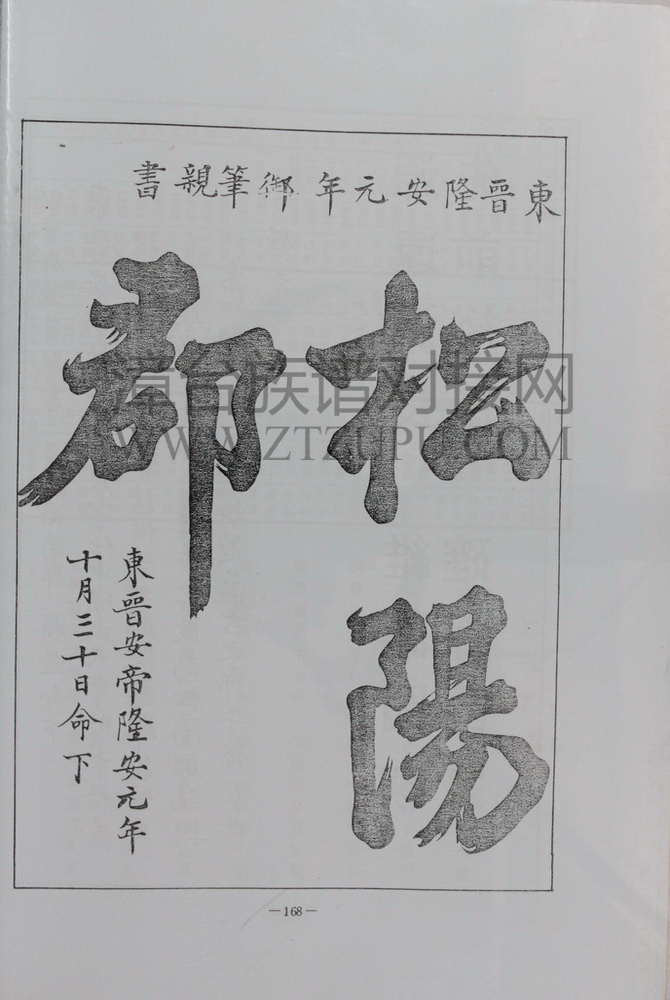 東晉隆安元年御筆親書
松陽
郡
東晉安帝隆安元年
十月三十日命下
漳台族谱对接网
WWW.ZTZUPU.COM
—168—